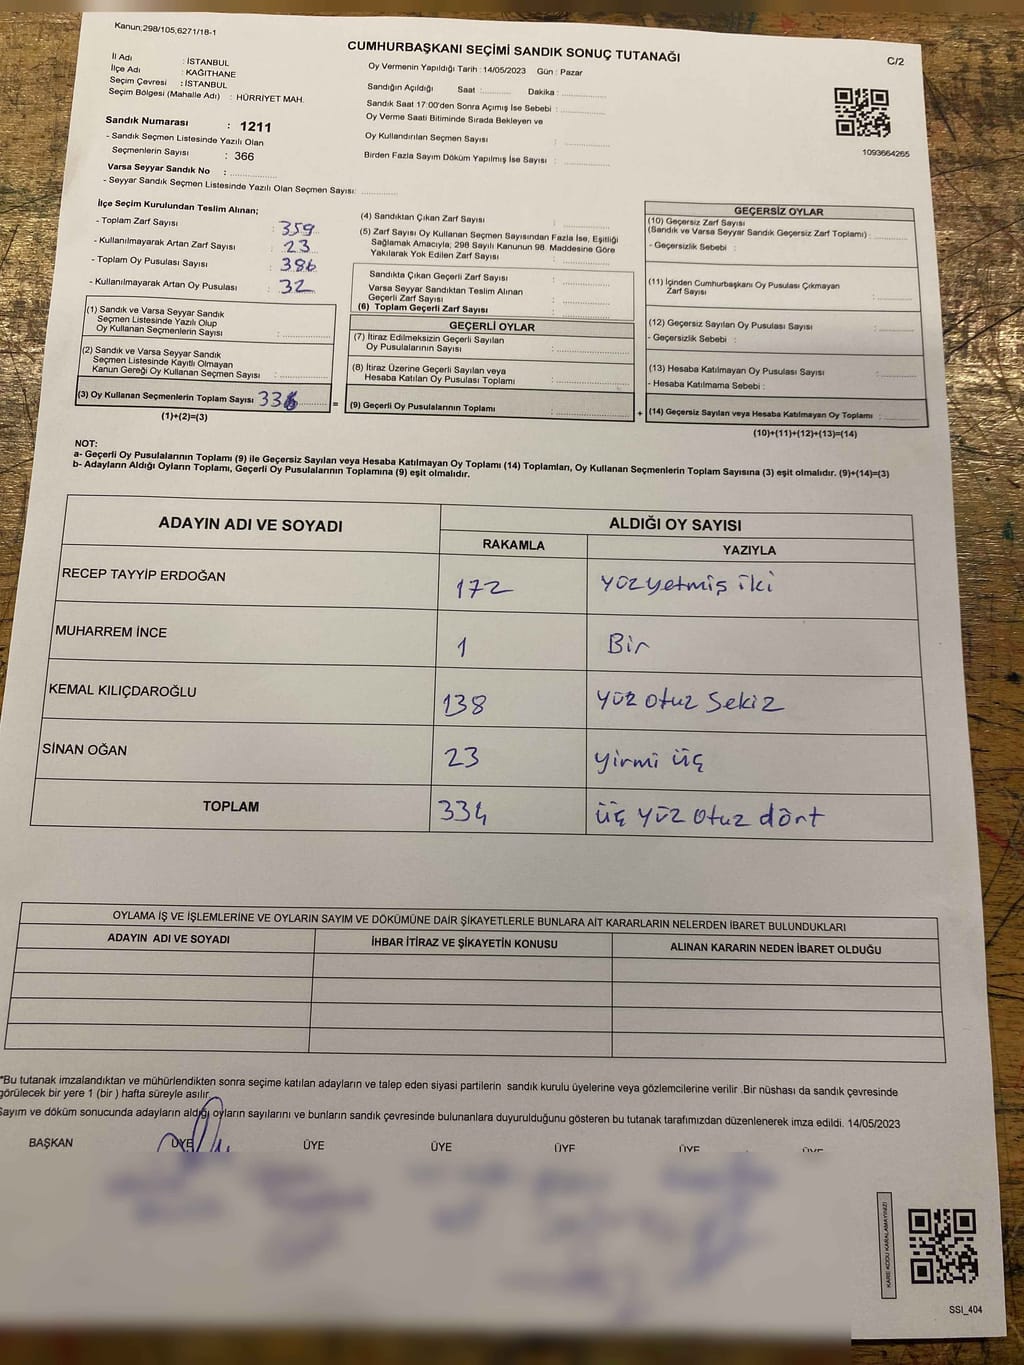 Kanun,298/105,6271/18-1
CUMHURBAŞKANI SEÇİMİ SANDIK SONUÇ TUTANAĞI
C/2
İl Adı : İSTANBUL
İlçe Adı : KAĞITHANE
Seçim Çevresi : İSTANBUL
Seçim Bölgesi (Mahalle Adı) : HÜRRİYET MAH.
Sandık Numarası : 1211
- Sandık Seçmen Listesinde Yazılı Olan
Seçmenlerin Sayısı : 366
Varsa Seyyar Sandık No : ..............
- Seyyar Sandık Seçmen Listesinde Yazılı Olan Seçmen Sayısı: ............
Oy Vermenin Yapıldığı Tarih : 14/05/2023 Gün : Pazar
Sandığın Açıldığı Saat :......... Dakika : ..............
Sandık Saat 17:00'den Sonra Açımış İse Sebebi : ..............
Oy Verme Saati Bitiminde Sırada Bekleyen ve
Oy Kullandırılan Seçmen Sayısı : ..............
Birden Fazla Sayım Döküm Yapılmış İse Sayısı : ..............
1093664265
İlçe Seçim Kurulundan Teslim Alınan;
- Toplam Zarf Sayısı : 359
- Kullanılmayarak Artan Zarf Sayısı : 23
- Toplam Oy Pusulası Sayısı : 386
- Kullanılmayarak Artan Oy Pusulası : 32
(1) Sandık ve Varsa Seyyar Sandık
Seçmen Listesinde Yazılı Olup
Oy Kullanan Seçmenlerin Sayısı : ..............
(2) Sandık ve Varsa Seyyar Sandık
Seçmen Listesinde Kayıtlı Olmayan
Kanun Gereği Oy Kullanan Seçmen Sayısı : ..............
(3) Oy Kullanan Seçmenlerin Toplam Sayısı 336 =
(1)+(2)=(3)
(4) Sandıktan Çıkan Zarf Sayısı : ..............
(5) Zarf Sayısı Oy Kullanan Seçmen Sayısından Fazla İse, Eşitliği
Sağlamak Amacıyla, 298 Sayılı Kanunun 98. Maddesine Göre
Yakılarak Yok Edilen Zarf Sayısı : ..............
Sandıkta Çıkan Geçerli Zarf Sayısı : ..............
Varsa Seyyar Sandıktan Teslim Alınan
Geçerli Zarf Sayısı : ..............
(6) Toplam Geçerli Zarf Sayısı : ..............
GEÇERLİ OYLAR
(7) İtiraz Edilmeksizin Geçerli Sayılan
Oy Pusulalarının Sayısı : ..............
(8) İtiraz Üzerine Geçerli Sayılan veya
Hesaba Katılan Oy Pusulası Toplamı : ..............
(9) Geçerli Oy Pusulalarının Toplamı : .............. +
GEÇERSİZ OYLAR
(10) Geçersiz Zarf Sayısı
(Sandık ve Varsa Seyyar Sandık Geçersiz Zarf Toplamı) : ..........
- Geçersizlik Sebebi :
(11) İçinden Cumhurbaşkanı Oy Pusulası Çıkmayan
Zarf Sayısı : ..........
(12) Geçersiz Sayılan Oy Pusulası Sayısı : ..........
- Geçersizlik Sebebi :
(13) Hesaba Katılmayan Oy Pusulası Sayısı : ..........
- Hesaba Katılmama Sebebi :
(14) Geçersiz Sayılan veya Hesaba Katılmayan Oy Toplamı : ..........
(10)+(11)+(12)+(13)=(14)
NOT:
a- Geçerli Oy Pusulalarının Toplamı (9) ile Geçersiz Sayılan veya Hesaba Katılmayan Oy Toplamı (14) Toplamları, Oy Kullanan Seçmenlerin Toplam Sayısına (3) eşit olmalıdır. (9)+(14)=(3)
b- Adayların Aldığı Oyların Toplamı, Geçerli Oy Pusulalarının Toplamına (9) eşit olmalıdır.
ADAYIN ADI VE SOYADI
ALDIĞI OY SAYISI
RAKAMLA YAZIYLA
RECEP TAYYİP ERDOĞAN 172 yüzyetmiş iki
MUHARREM İNCE 1 Bir
KEMAL KILIÇDAROĞLU 138 yüz otuz sekiz
SİNAN OĞAN 23 yirmi üç
TOPLAM 334 üç yüz otuz dört
OYLAMA İŞ VE İŞLEMLERİNE VE OYLARIN SAYIM VE DÖKÜMÜNE DAİR ŞİKAYETLERLE BUNLARA AİT KARARLARIN NELERDEN İBARET BULUNDUKLARI
ADAYIN ADI VE SOYADI İHBAR İTİRAZ VE ŞİKAYETİN KONUSU ALINAN KARARIN NEDEN İBARET OLDUĞU
*Bu tutanak imzalandıktan ve mühürlendikten sonra seçime katılan adayların ve talep eden siyasi partilerin sandık kurulu üyelerine veya gözlemcilerine verilir .Bir nüshası da sandık çevresinde
görülecek bir yere 1 (bir ) hafta süreyle asılır.
Sayım ve döküm sonucunda adayların aldığı oyların sayılarını ve bunların sandık çevresinde bulunanlara duyurulduğunu gösteren bu tutanak tarafımızdan düzenlenerek imza edildi. 14/05/2023
BAŞKAN ÜYE ÜYE ÜYE ÜYE ÜYE ÜYE
KARE KODU KARALAMAYINIZ!
SSI_404